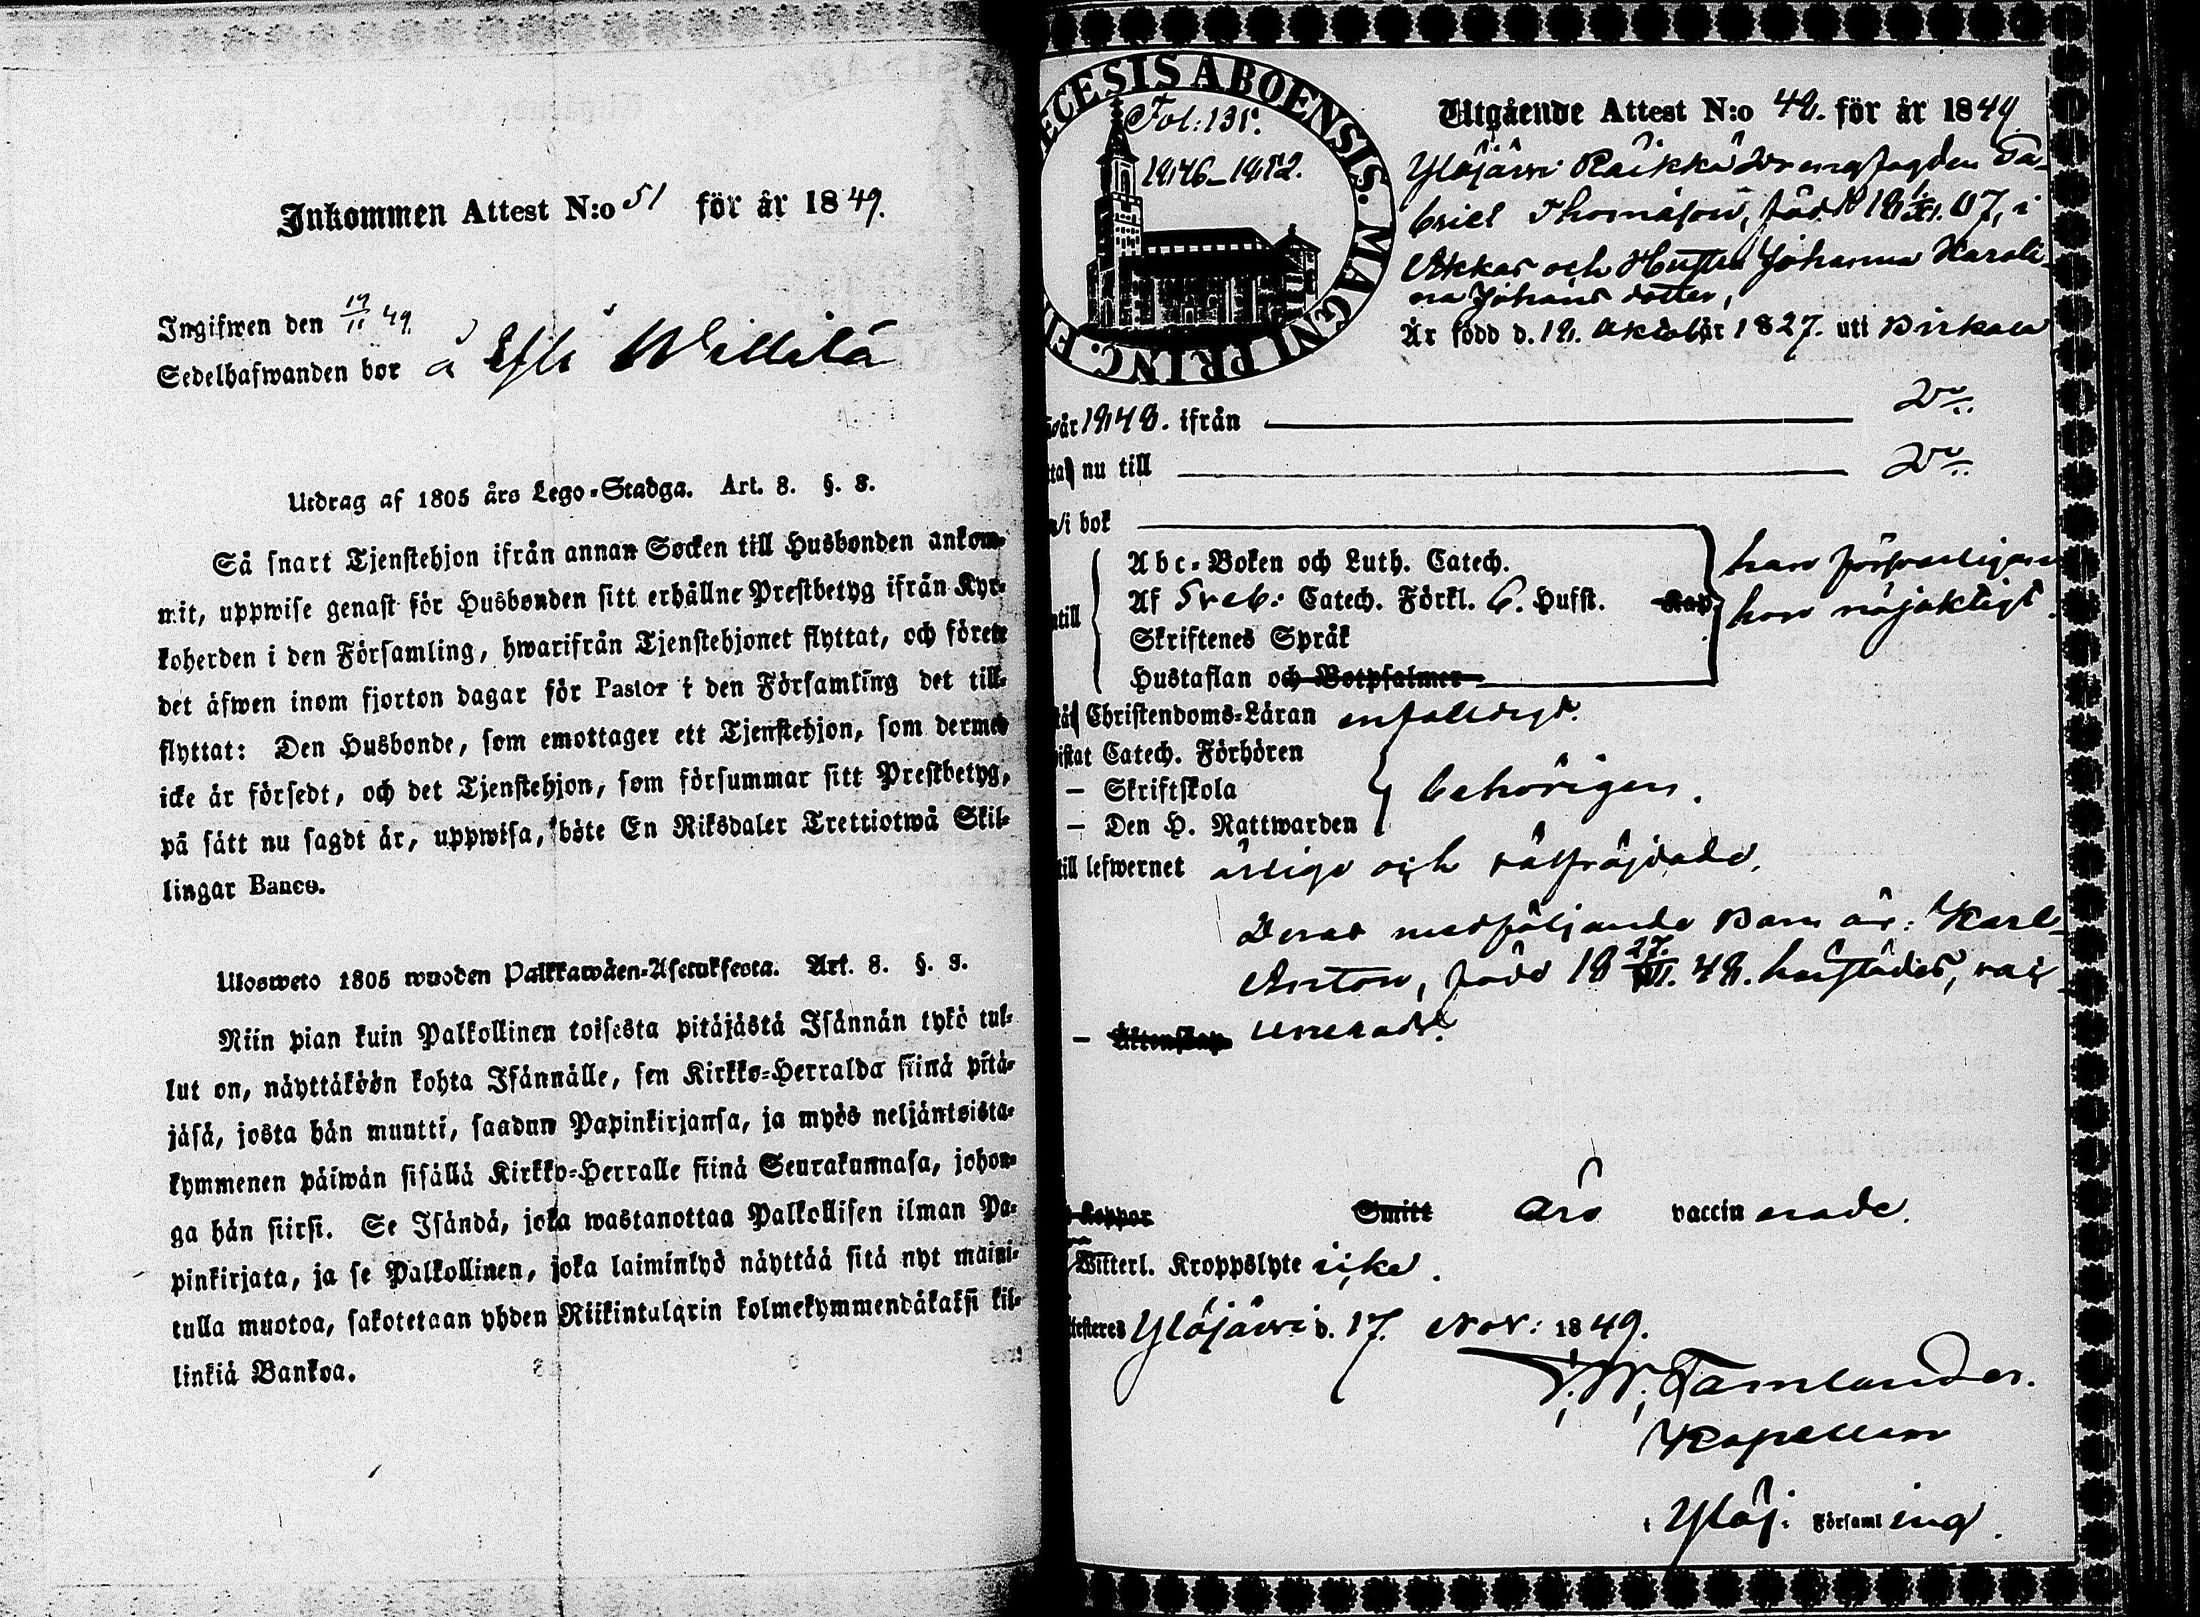 Inkommen Attest N:o 51 för år 1849.
Ingifwen den 19/11 49.
Sedelhafwanden bor å Yli Willilä
Utdrag af 1805 års Lego-Stadga. Art. 8. §. 8.
Så snart Tjenstehjon ifrån annan Socken till Husbonden ankom-
mit, uppwise genast för Husbonden sitt erhållne Prestbetyg ifrån Kyr-
koherden i den Församling, hwarifrån Tjenstehjonet flyttat, och förete
det äfwen inom fjorton dagar för Pastor i den Församling det till-
flyttat: Den Husbonde, som emottager ett Tjenstehjon, som dermed
icke är försedt, och det Tjenstehjon, som försummar sitt Prestbetyg,
på sätt nu sagdt är, uppwisa, böte En Riksdaler Trettiotwå Skil-
lingar Banco.
Ulosweto 1805 wuoden Palkkawäen-Asetuksesta. Art. 8. §. 8.
Niin pian kuin Palkollinen toisesta pitäjästä Isännän tykö tul-
lut on, näyttäköön kohta Isännälle, sen Kirkko-Herralda siinä pitä-
jäsä, josta hän muutti, saadun Papinkirjansa, ja myös neljäntoista-
kymmenen päiwän sisällä Kirkko-Herralle siinä Seurakunnasa, johon-
ga hän siirsi. Se Isändä, joka wastanottaa Palkollisen ilman Pa-
pinkirjata, ja se Palkollinen, joka laiminlyö näyttää sitä nyt maini-
tulla muotoa, sakotetaan yhden Riikintalarin kolmekymmendäkaksi kil-
linkiä Bankoa.
ECESIS ABOENSIS. MAGNI PRINC. FI
Fol: 131.
1846–1852.
Utgående Attest N:o 48. för år 1849.
Ylöjärvi Räikkä Drengfogden Ga-
briel Thomasson, född 18 1/XI. 07, i
Akkas och Hustru Johanna Karoli-
na Johans dotter,
Är född d. 18. Oktober 1827. uti Birkala
år 1848. ifrån
nu till
i bok
Abc-Boken och Luth. Catech.
han försvarligen
Af Sveb: Catech. Förkl. 6. Husst. Kap.
hon nöjaktigt.
Skriftenes Språk
Hustaflan och Botpsalmer
Christendoms-Läran enfaldigt.
istat Catech. Förhören
— Skriftskola
behörigen.
— Den H. Nattwarden
till lefwernet ärliga och välfräjdade.
Deras medföljande Barn är: Karl
Anton, född 18 27/VII. 48. härstädes, vac-
— Äktenskap cinerad.
Koppor Smitt äro vaccinerade.
Witterl. Kroppslyte icke.
Ylöjärvi d. 17. Nov: 1849.
Tamlander.
Kapellan
i Ylöj: Församling.